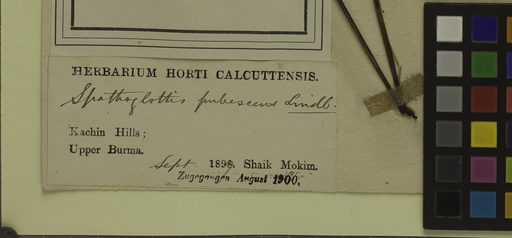 HERBARIUM HORTI CALCUTTENSIS.
Spathoglottis pubescens Lindl.
Kachin Hills;
Upper Burma.
Sept 1898. Shaik Mokim.
Zugegangen August 1900.